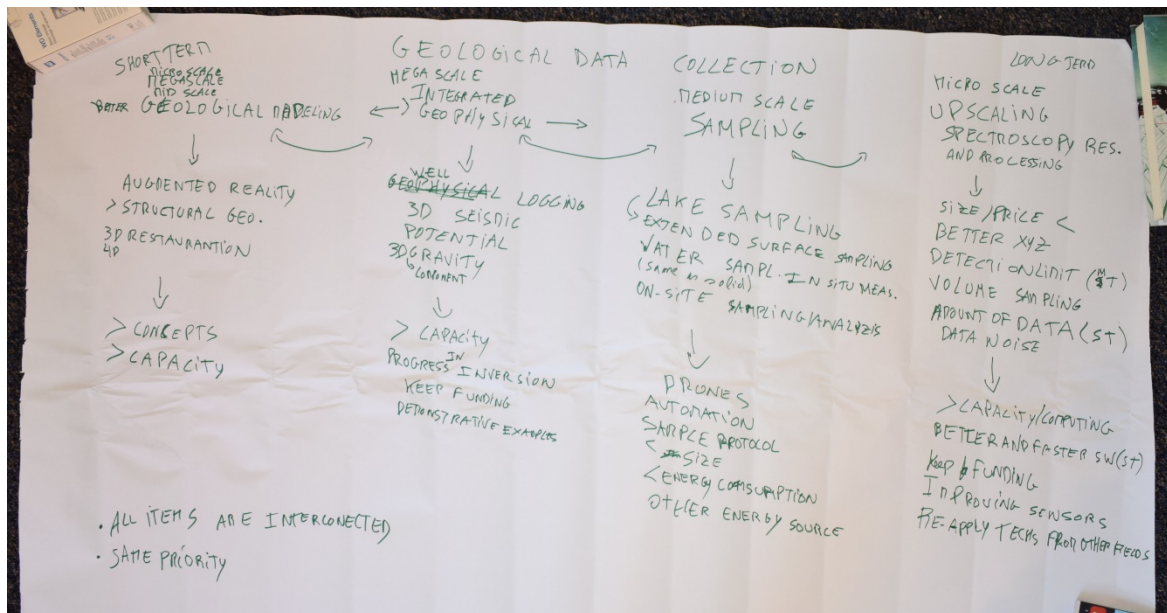 GEOLOGICAL DATA COLLECTION
SHORT TERM
MICRO SCALE
MEGASCALE
MID SCALE
BETTER GEOLOGICAL MODELING
AUGMENTED REALITY
> STRUCTURAL GEO.
3D RESTAURANTION
4D
> CONCEPTS
> CAPACITY
• ALL ITEMS ARE INTERCONECTED
• SAME PRIORITY
MEGA SCALE
INTEGRATED
GEOPHYSICAL
WELL
GEOPHYSICAL LOGGING
3D SEISMIC
POTENTIAL
3D GRAVITY
COMPONENT
> CAPACITY
PROGRESS IN INVERSION
KEEP FUNDING
DEMONSTRATIVE EXAMPLES
MEDIUM SCALE
SAMPLING
LAKE SAMPLING
EXTENDED SURFACE SAMPLING
WATER SAMPL. IN SITU MEAS.
(same as solid)
ON-SITE SAMPLING/ANALYZIS
DRONES
AUTOMATION
SAMPLE PROTOCOL
< SIZE
< ENERGY CONSUMPTION
OTHER ENERGY SOURCE
LONG TERM
MICRO SCALE
UPSCALING
SPECTROSCOPY RES.
AND PROCESSING
SIZE/PRICE <
BETTER XYZ
DETECTION LIMIT (MT)
VOLUME SAMPLING
AMOUNT OF DATA (ST)
DATA NOISE
> CAPACITY/COMPUTING
BETTER AND FASTER SW (ST)
KEEP FUNDING
IMPROVING SENSORS
RE-APPLY TECHS FROM OTHER FIELDS